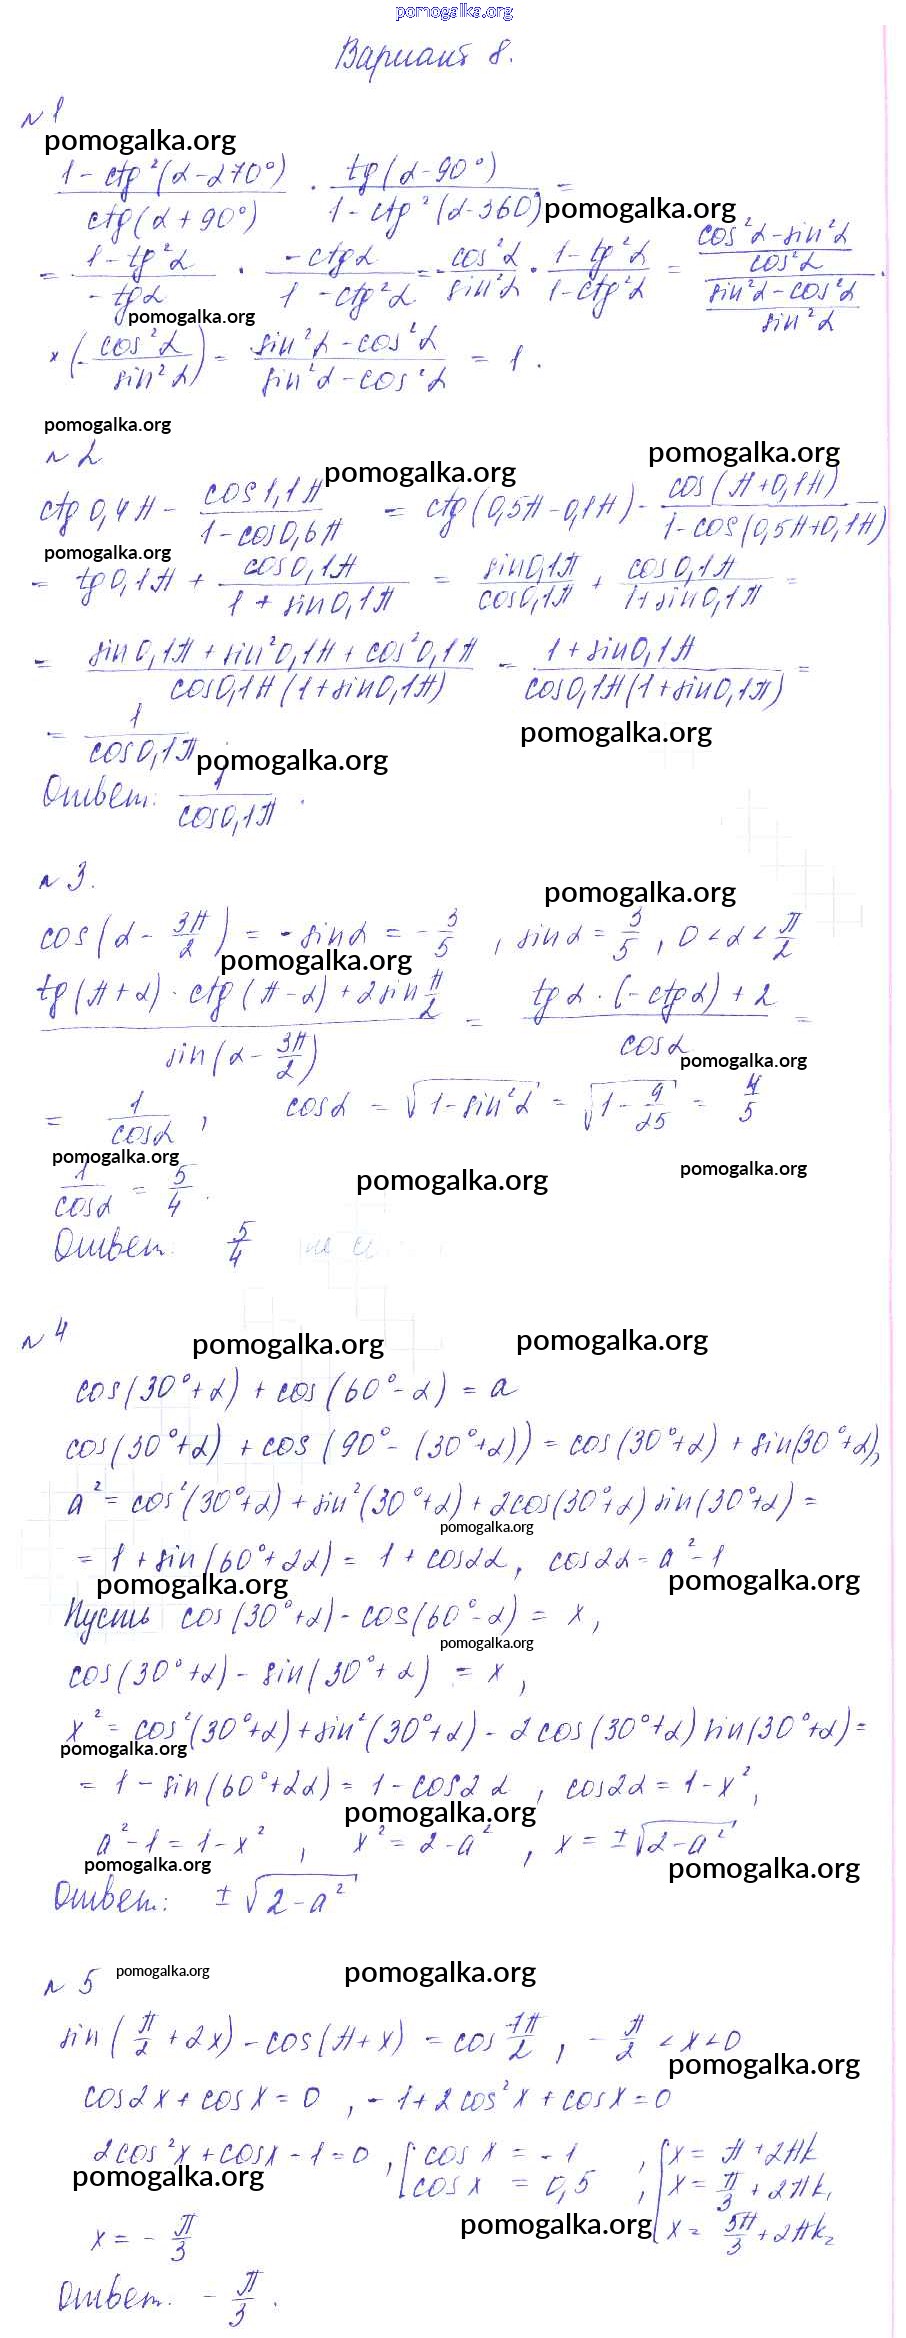 pomogalka.org
Вариант 8.
№1
pomogalka.org
(1 - ctg²(α - 270°))/(ctg(α + 90°)) · (tg(α - 90°))/(1 - ctg²(α - 360)) =
pomogalka.org
= (1 - tg²α)/(-tgα) · (-ctgα)/(1 - ctg²α) = - cos²α/sin²α · (1 - tg²α)/(1 - ctg²α) = ((cos²α - sin²α)/cos²α)/((sin²α - cos²α)/sin²α) ·
pomogalka.org
× (- cos²α/sin²α) = (sin²α - cos²α)/(sin²α - cos²α) = 1.
pomogalka.org
№2
pomogalka.org
pomogalka.org
ctg 0,4π - cos1,1π/(1 - cos0,6π) = ctg(0,5π - 0,1π) - cos(π + 0,1π)/(1 - cos(0,5π + 0,1π))
pomogalka.org
= tg0,1π + cos0,1π/(1 + sin0,1π) = sin0,1π/cos0,1π + cos0,1π/(1 + sin0,1π) =
= (sin0,1π + sin²0,1π + cos²0,1π)/(cos0,1π(1 + sin0,1π)) = (1 + sin0,1π)/(cos0,1π(1 + sin0,1π)) =
pomogalka.org
= 1/cos0,1π
pomogalka.org
Ответ: 1/cos0,1π.
№3.
pomogalka.org
cos(α - 3π/2) = - sinα = - 3/5, sinα = 3/5, 0 < α < π/2
pomogalka.org
(tg(π + α) · ctg(π - α) + 2sin π/2)/(sin(α - 3π/2)) = (tgα · (-ctgα) + 2)/cosα =
pomogalka.org
= 1/cosα, cosα = √(1 - sin²α) = √(1 - 9/25) = 4/5
pomogalka.org
pomogalka.org
pomogalka.org
1/cosα = 5/4.
Ответ: 5/4
№4
pomogalka.org
pomogalka.org
cos(30° + α) + cos(60° - α) = a
cos(30° + α) + cos(90° - (30° + α)) = cos(30° + α) + sin(30° + α),
a² = cos²(30° + α) + sin²(30° + α) + 2cos(30° + α) sin(30° + α) =
pomogalka.org
= 1 + sin(60° + 2α) = 1 + cos2α, cos2α = a² - 1
pomogalka.org
pomogalka.org
Пусть cos(30° + α) - cos(60° - α) = x,
pomogalka.org
cos(30° + α) - sin(30° + α) = x,
x² = cos²(30° + α) + sin²(30° + α) - 2cos(30° + α) sin(30° + α) =
pomogalka.org
= 1 - sin(60° + 2α) = 1 - cos2α, cos2α = 1 - x²,
pomogalka.org
a² - 1 = 1 - x², x² = 2 - a², x = ±√(2 - a²)
pomogalka.org
pomogalka.org
Ответ: ±√(2 - a²)
№5
pomogalka.org
pomogalka.org
sin(π/2 + 2x) - cos(π + x) = cos 7π/2, - π/2 < x < 0
pomogalka.org
cos2x + cosx = 0, -1 + 2cos²x + cosx = 0
2cos²x + cosx - 1 = 0, [cosx = -1, [x = π + 2πk
pomogalka.org
cosx = 0,5, x = π/3 + 2πk₁
pomogalka.org
x = - π/3 x = 5π/3 + 2πk₂
Ответ. - π/3.